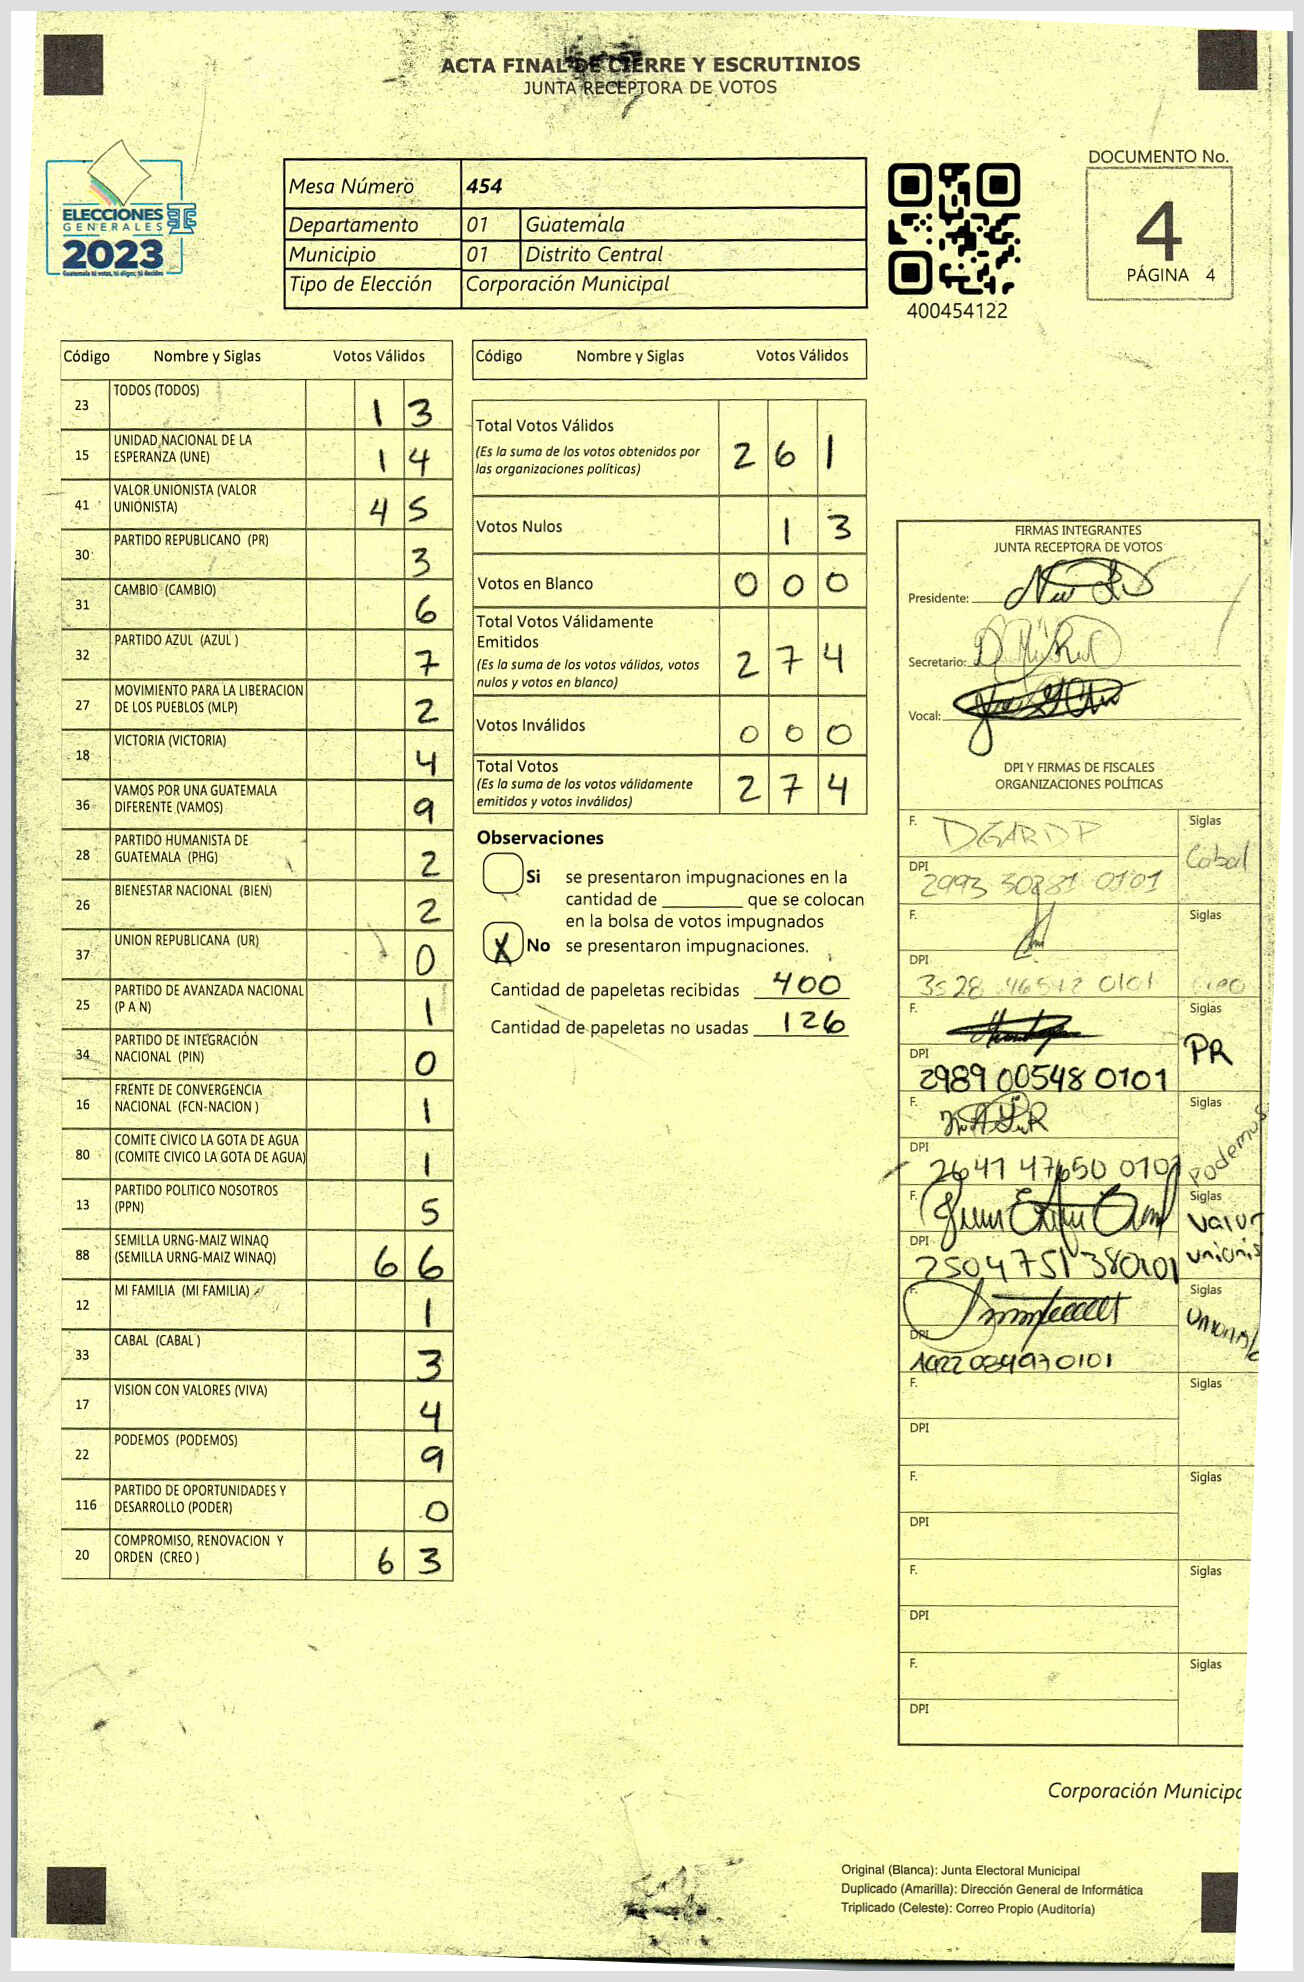 ACTA FINAL DE CIERRE Y ESCRUTINIOS
JUNTA RECEPTORA DE VOTOS
ELECCIONES
GENERALES
2023
Guatemala tú votas, tú eliges, tú decides
Mesa Número 454
Departamento 01 Guatemala
Municipio 01 Distrito Central
Tipo de Elección Corporación Municipal
400454122
DOCUMENTO No.
4
PÁGINA 4
Código Nombre y Siglas Votos Válidos
23 TODOS (TODOS) 13
15 UNIDAD NACIONAL DE LA
ESPERANZA (UNE) 14
41 VALOR UNIONISTA (VALOR
UNIONISTA) 45
30 PARTIDO REPUBLICANO (PR) 3
31 CAMBIO (CAMBIO) 6
32 PARTIDO AZUL (AZUL ) 7
27 MOVIMIENTO PARA LA LIBERACION
DE LOS PUEBLOS (MLP) 2
18 VICTORIA (VICTORIA) 4
36 VAMOS POR UNA GUATEMALA
DIFERENTE (VAMOS) 9
28 PARTIDO HUMANISTA DE
GUATEMALA (PHG) 2
26 BIENESTAR NACIONAL (BIEN) 2
37 UNION REPUBLICANA (UR) 0
25 PARTIDO DE AVANZADA NACIONAL
(P A N) 1
34 PARTIDO DE INTEGRACIÓN
NACIONAL (PIN) 0
16 FRENTE DE CONVERGENCIA
NACIONAL (FCN-NACION ) 1
80 COMITE CÍVICO LA GOTA DE AGUA
(COMITE CIVICO LA GOTA DE AGUA) 1
13 PARTIDO POLITICO NOSOTROS
(PPN) 5
88 SEMILLA URNG-MAIZ WINAQ
(SEMILLA URNG-MAIZ WINAQ) 66
12 MI FAMILIA (MI FAMILIA) 1
33 CABAL (CABAL ) 3
17 VISION CON VALORES (VIVA) 4
22 PODEMOS (PODEMOS) 9
116 PARTIDO DE OPORTUNIDADES Y
DESARROLLO (PODER) 0
20 COMPROMISO, RENOVACION Y
ORDEN (CREO ) 63
Código Nombre y Siglas Votos Válidos
Total Votos Válidos
(Es la suma de los votos obtenidos por
las organizaciones políticas) 261
Votos Nulos 13
Votos en Blanco 000
Total Votos Válidamente
Emitidos
(Es la suma de los votos válidos, votos
nulos y votos en blanco) 274
Votos Inválidos 000
Total Votos
(Es la suma de los votos válidamente
emitidos y votos inválidos) 274
Observaciones
Si se presentaron impugnaciones en la
cantidad de ________ que se colocan
en la bolsa de votos impugnados
X No se presentaron impugnaciones.
Cantidad de papeletas recibidas 400
Cantidad de papeletas no usadas 126
FIRMAS INTEGRANTES
JUNTA RECEPTORA DE VOTOS
Presidente:
Secretario:
Vocal:
DPI Y FIRMAS DE FISCALES
ORGANIZACIONES POLÍTICAS
F. Siglas
Cabal
DPI
2993 30881 0101
F. Siglas
DPI
0101 Creo
F. Siglas
PR
DPI
2989 00548 0101
F. Siglas
Podemos
DPI
2641 47650 0101
F. Siglas
Valor
unionis
DPI
2504 75138 0101
F. Siglas
Unionis
DPI
F. Siglas
DPI
F. Siglas
DPI
F. Siglas
DPI
F. Siglas
DPI
Corporación Municipa
Original (Blanca): Junta Electoral Municipal
Duplicado (Amarilla): Dirección General de Informática
Triplicado (Celeste): Correo Propio (Auditoría)